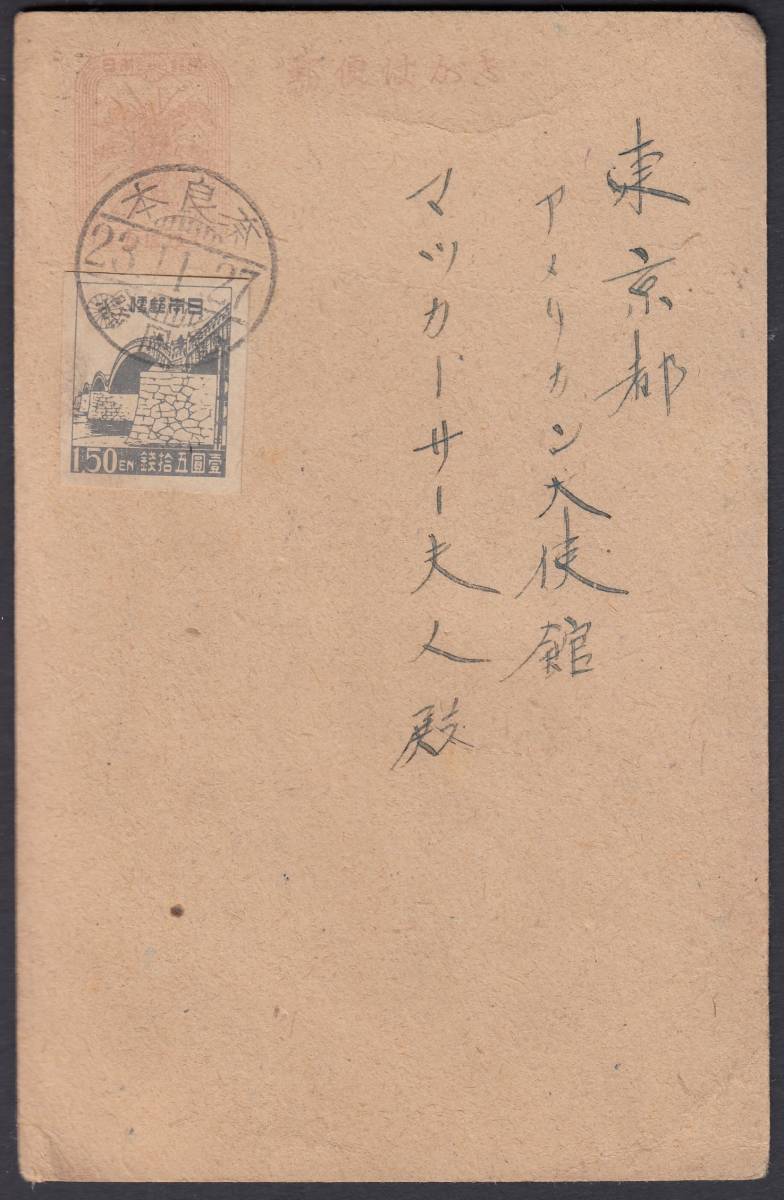 郵便はがき
奈良本
23.11.27
日本郵便
1.50EN 壹圓五拾錢
東京都
アメリカン大使館
マツカーサー夫人殿